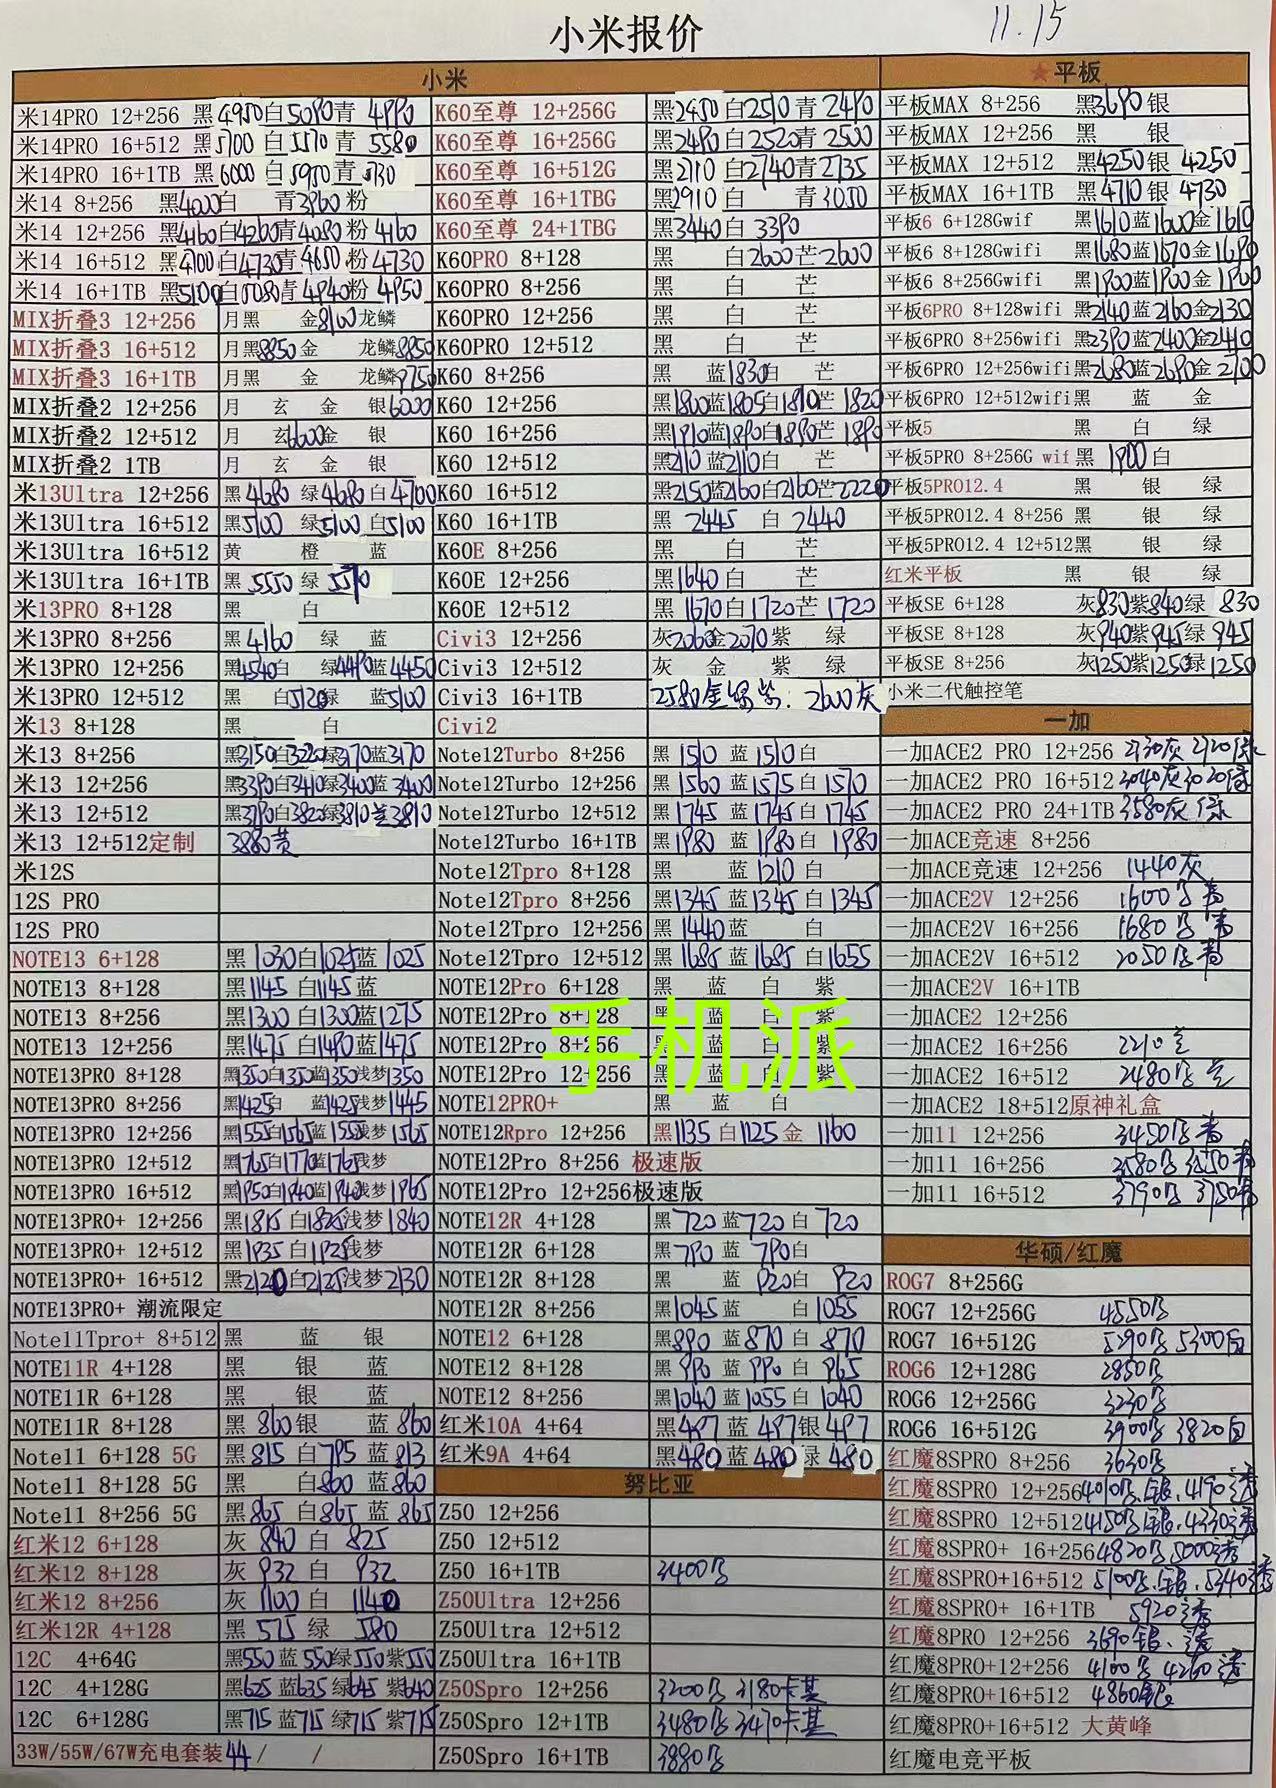 小米报价
11.15
小米
米14PRO 12+256 黑4950白5090青 4990
米14PRO 16+512 黑5700 白5570青 5580
米14PRO 16+1TB 黑6000 白5950青
米14 8+256 黑4000白 青3960粉
米14 12+256 黑4160白4260青4080粉 4160
米14 16+512 黑4700白4730青4650粉4730
米14 16+1TB 黑5100白5080青4940粉4950
MIX折叠3 12+256 月黑 金8100龙鳞
MIX折叠3 16+512 月黑8850金 龙鳞8850
MIX折叠3 16+1TB 月黑 金 龙鳞9750
MIX折叠2 12+256 月 玄 金 银6000
MIX折叠2 12+512 月 玄6600金 银
MIX折叠2 1TB 月 玄 金 银
米13Ultra 12+256 黑4680 绿4680白4700
米13Ultra 16+512 黑5100 绿5100 白5100
米13Ultra 16+512 黄 橙 蓝
米13Ultra 16+1TB 黑 5550 绿 5570
米13PRO 8+128 黑 白
米13PRO 8+256 黑4160 绿 蓝
米13PRO 12+256 黑4540白 绿4490蓝4450
米13PRO 12+512 黑 白5120绿 蓝5100
米13 8+128 黑 白
米13 8+256 黑3150白3220绿3170蓝3170
米13 12+256 黑3390白3410绿3400蓝3400
米13 12+512 黑3790白3820绿3810兰3810
米13 12+512定制 3880黄
米12S
12S PRO
12S PRO
NOTE13 6+128 黑1030白1025蓝 1025
NOTE13 8+128 黑1145 白1145蓝
NOTE13 8+256 黑1300 白1300蓝1275
NOTE13 12+256 黑1475 白1490蓝1475
NOTE13PRO 8+128 黑1350白1350蓝1350浅梦1350
NOTE13PRO 8+256 黑1425白 蓝1425浅梦1445
NOTE13PRO 12+256 黑1555白1565蓝1555浅梦1565
NOTE13PRO 12+512 黑1765白1770蓝1765浅梦
NOTE13PRO 16+512 黑1950白1940蓝1940浅梦1965
NOTE13PRO+ 12+256 黑1815 白1825浅梦 1840
NOTE13PRO+ 12+512 黑1935 白1925浅梦
NOTE13PRO+ 16+512 黑2120白2125浅梦2130
NOTE13PRO+ 潮流限定
Note11Tpro+ 8+512 黑 蓝 银
NOTE11R 4+128 黑 银 蓝
NOTE11R 6+128 黑 银 蓝
NOTE11R 8+128 黑 860银 蓝860
Note11 6+128 5G 黑 815 白795 蓝 813
Note11 8+128 5G 黑 白800 蓝860
Note11 8+256 5G 黑865 白865 蓝 865
红米12 6+128 灰 840 白 825
红米12 8+128 灰 932 白 932
红米12 8+256 灰 1100 白 1140
红米12R 4+128 黑 575 绿 580
12C 4+64G 黑550蓝550绿550紫550
12C 4+128G 黑625 蓝635绿645 紫640
12C 6+128G 黑715 蓝715 绿715 紫715
33W/55W/67W充电套装44 / /
K60至尊 12+256G 黑2450白2510青2490
K60至尊 16+256G 黑2490白2520青2500
K60至尊 16+512G 黑2710白2740青2735
K60至尊 16+1TBG 黑2910白 青3050
K60至尊 24+1TBG 黑3440白 3390
K60PRO 8+128 黑 白2600芒2600
K60PRO 8+256 黑 白 芒
K60PRO 12+256 黑 白 芒
K60PRO 12+512 黑 白 芒
K60 8+256 黑 蓝1830白 芒
K60 12+256 黑1800蓝1805白1810芒 1820
K60 16+256 黑1910蓝1890白1890芒 1890
K60 12+512 黑2110蓝2110白 芒
K60 16+512 黑2150蓝2160白2160芒2220
K60 16+1TB 黑 2445 白 2440
K60E 8+256 黑 白 芒
K60E 12+256 黑1640白 芒
K60E 12+512 黑 1670白1720芒 1720
Civi3 12+256 灰2060金2070紫 绿
Civi3 12+512 灰 金 紫 绿
Civi3 16+1TB 2580金绿紫. 2600灰
Civi2
Note12Turbo 8+256 黑 1510 蓝 1510白
Note12Turbo 12+256 黑 1560 蓝 1575 白 1570
Note12Turbo 12+512 黑 1745 蓝 1745 白 1745
Note12Turbo 16+1TB 黑 1980 蓝 1980 白 1980
Note12Tpro 8+128 黑 蓝1210 白
Note12Tpro 8+256 黑1345 蓝 1345 白 1345
Note12Tpro 12+256 黑1440蓝 白
Note12Tpro 12+512 黑1685 蓝 1685 白1655
NOTE12Pro 6+128 黑 蓝 白 紫
NOTE12Pro 8+128 黑 蓝 白 紫
NOTE12Pro 8+256 黑 蓝 白 紫
NOTE12Pro 12+256 黑 蓝 白 紫
NOTE12PRO+ 黑 蓝 白
NOTE12Rpro 12+256 黑1135 白1125 金 1160
NOTE12Pro 8+256 极速版
NOTE12Pro 12+256极速版
NOTE12R 4+128 黑720 蓝720 白 720
NOTE12R 6+128 黑790 蓝 790白
NOTE12R 8+128 黑 蓝 920白 920
NOTE12R 8+256 黑1045蓝 白1055
NOTE12 6+128 黑890 蓝870 白 870
NOTE12 8+128 黑 990 蓝 990 白 965
NOTE12 8+256 黑1040 蓝1055 白 1040
红米10A 4+64 黑497 蓝 497银 497
红米9A 4+64 黑480 蓝 480 绿 480
努比亚
Z50 12+256
Z50 12+512
Z50 16+1TB 3400黑
Z50Ultra 12+256
Z50Ultra 12+512
Z50Ultra 16+1TB
Z50Spro 12+256 3200黑 3180卡其
Z50Spro 12+1TB 3480黑 3470卡其
Z50Spro 16+1TB 3880黑
★平板
平板MAX 8+256 黑3690 银
平板MAX 12+256 黑 银
平板MAX 12+512 黑4250银 4250
平板MAX 16+1TB 黑4710 银 4730
平板6 6+128Gwif 黑1610蓝1600金1610
平板6 8+128Gwifi 黑1680蓝1670金1690
平板6 8+256Gwifi 黑1900蓝1900金1900
平板6PRO 8+128wifi 黑2140蓝2160金2130
平板6PRO 8+256wifi 黑2390蓝2400金2410
平板6PRO 12+256wifi黑2680蓝2690金 2700
平板6PRO 12+512wifi黑 蓝 金
平板5 黑 白 绿
平板5PRO 8+256G wif 黑 1900白
平板5PRO12.4 黑 银 绿
平板5PRO12.4 8+256 黑 银 绿
平板5PRO12.4 12+512黑 银 绿
红米平板 黑 银 绿
平板SE 6+128 灰830紫840绿 830
平板SE 8+128 灰940紫945绿 945
平板SE 8+256 灰1250紫1250绿1250
小米二代触控笔
一加
一加ACE2 PRO 12+256 2730灰 2720绿
一加ACE2 PRO 16+512 3040灰3020绿
一加ACE2 PRO 24+1TB 3580灰绿
一加ACE竞速 8+256
一加ACE竞速 12+256 1440灰
一加ACE2V 12+256 1600黑青
一加ACE2V 16+256 1680黑 青
一加ACE2V 16+512 2050黑青
一加ACE2V 16+1TB
一加ACE2 12+256
一加ACE2 16+256 2210兰
一加ACE2 16+512 2480黑兰
一加ACE2 18+512原神礼盒
一加11 12+256 3450黑青
一加11 16+256 3580黑 3550青
一加11 16+512 3790黑 3750青
华硕/红魔
ROG7 8+256G
ROG7 12+256G 4550黑
ROG7 16+512G 5290黑 5300白
ROG6 12+128G 2850黑
ROG6 12+256G 3230黑
ROG6 16+512G 3900黑 3820白
红魔8SPRO 8+256 3630黑
红魔8SPRO 12+256 4010黑.银.4190透
红魔8SPRO 12+512 4150黑银.4330透
红魔8SPRO+ 16+256 4820黑 5000透
红魔8SPRO+16+512 5100黑.银.5340透
红魔8SPRO+ 16+1TB 5920透
红魔8PRO 12+256 3690银、透
红魔8PRO+12+256 4100黑 4260透
红魔8PRO+16+512 4860银
红魔8PRO+16+512 大黄峰
红魔电竞平板
手机派